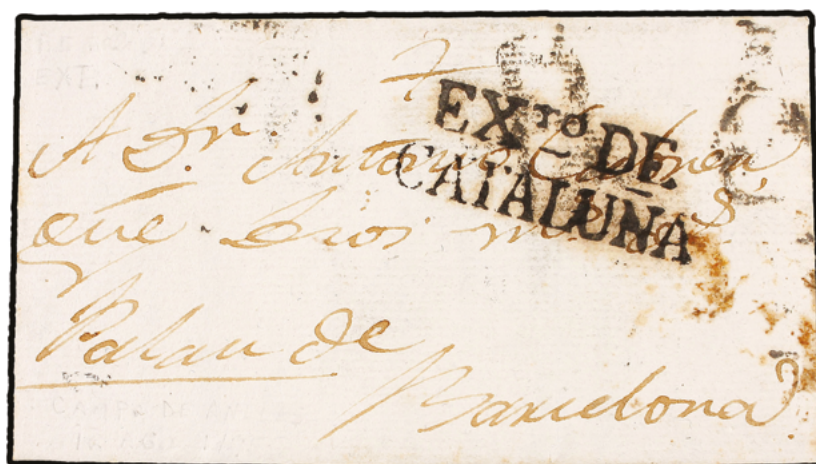 EXᵗº DE
CATALUÑA
A Dn. Antonio
que Dios m. a.s
Palau de
Barcelona